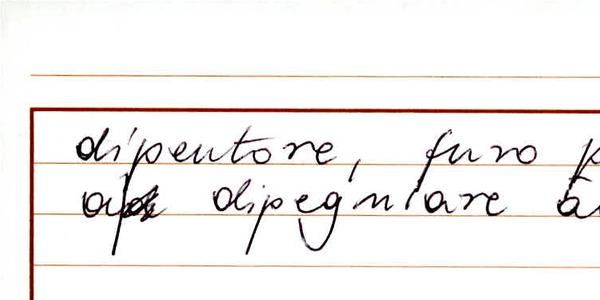 dipentore, furo p
a dipegniare a